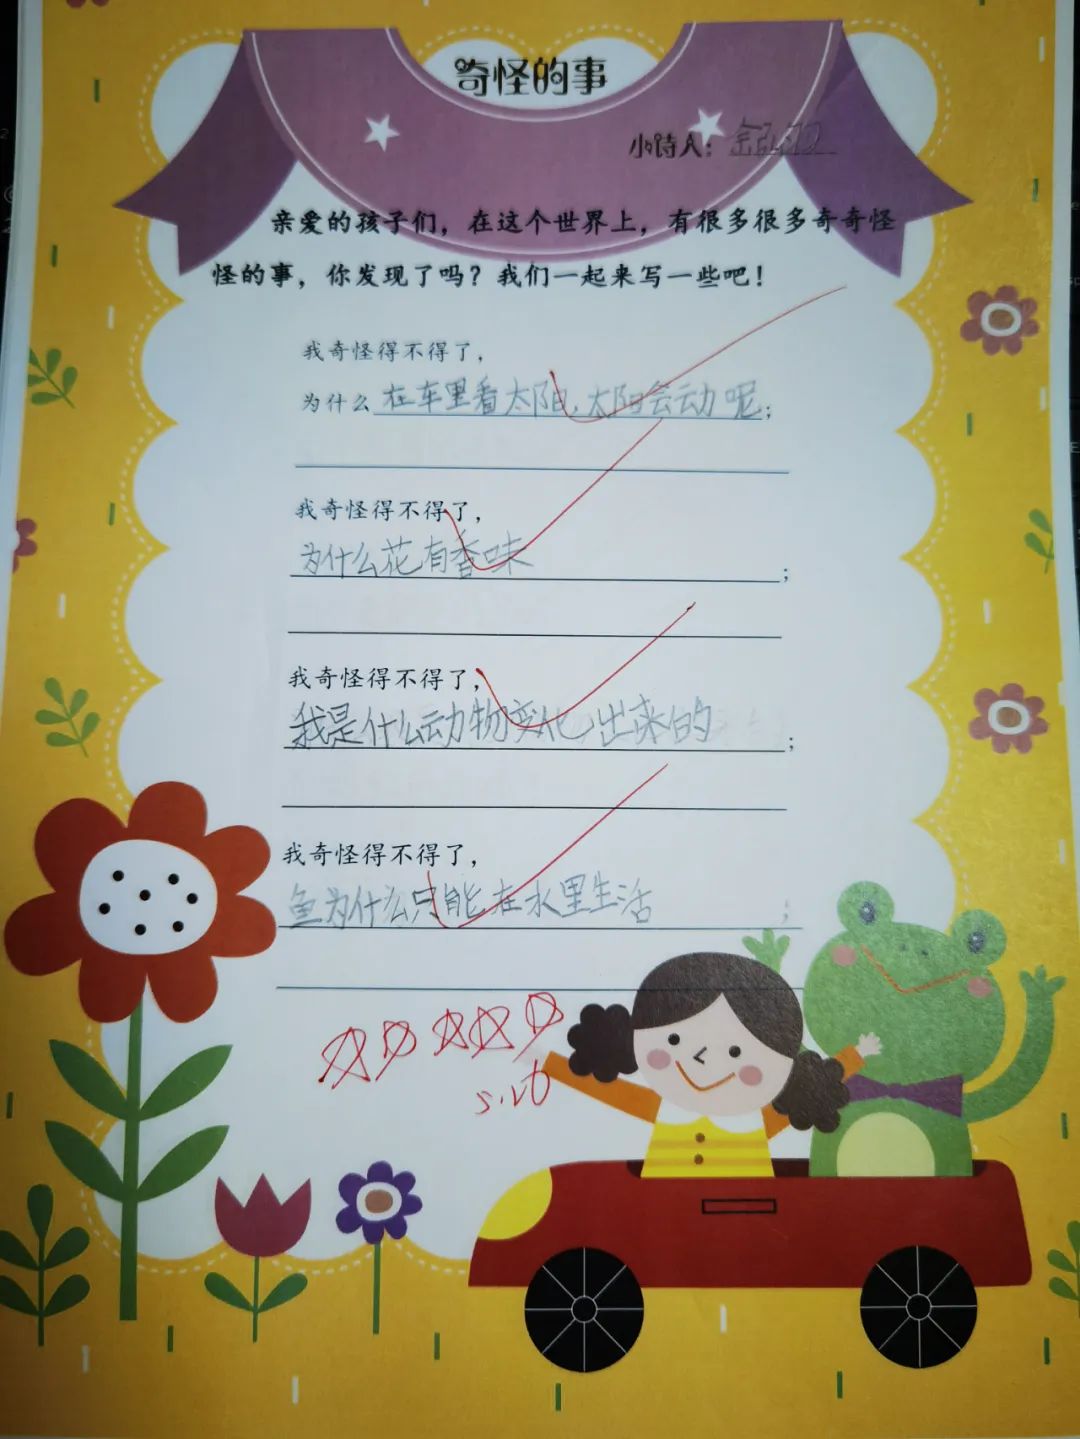 奇怪的事
小诗人：
亲爱的孩子们，在这个世界上，有很多很多奇奇怪
怪的事，你发现了吗？我们一起来写一些吧！
我奇怪得不得了，
为什么在车里看太阳，太阳会动呢；
我奇怪得不得了，
为什么花有香味；
我奇怪得不得了，
我是什么动物变化出来的；
我奇怪得不得了，
鱼为什么只能在水里生活；
5.26